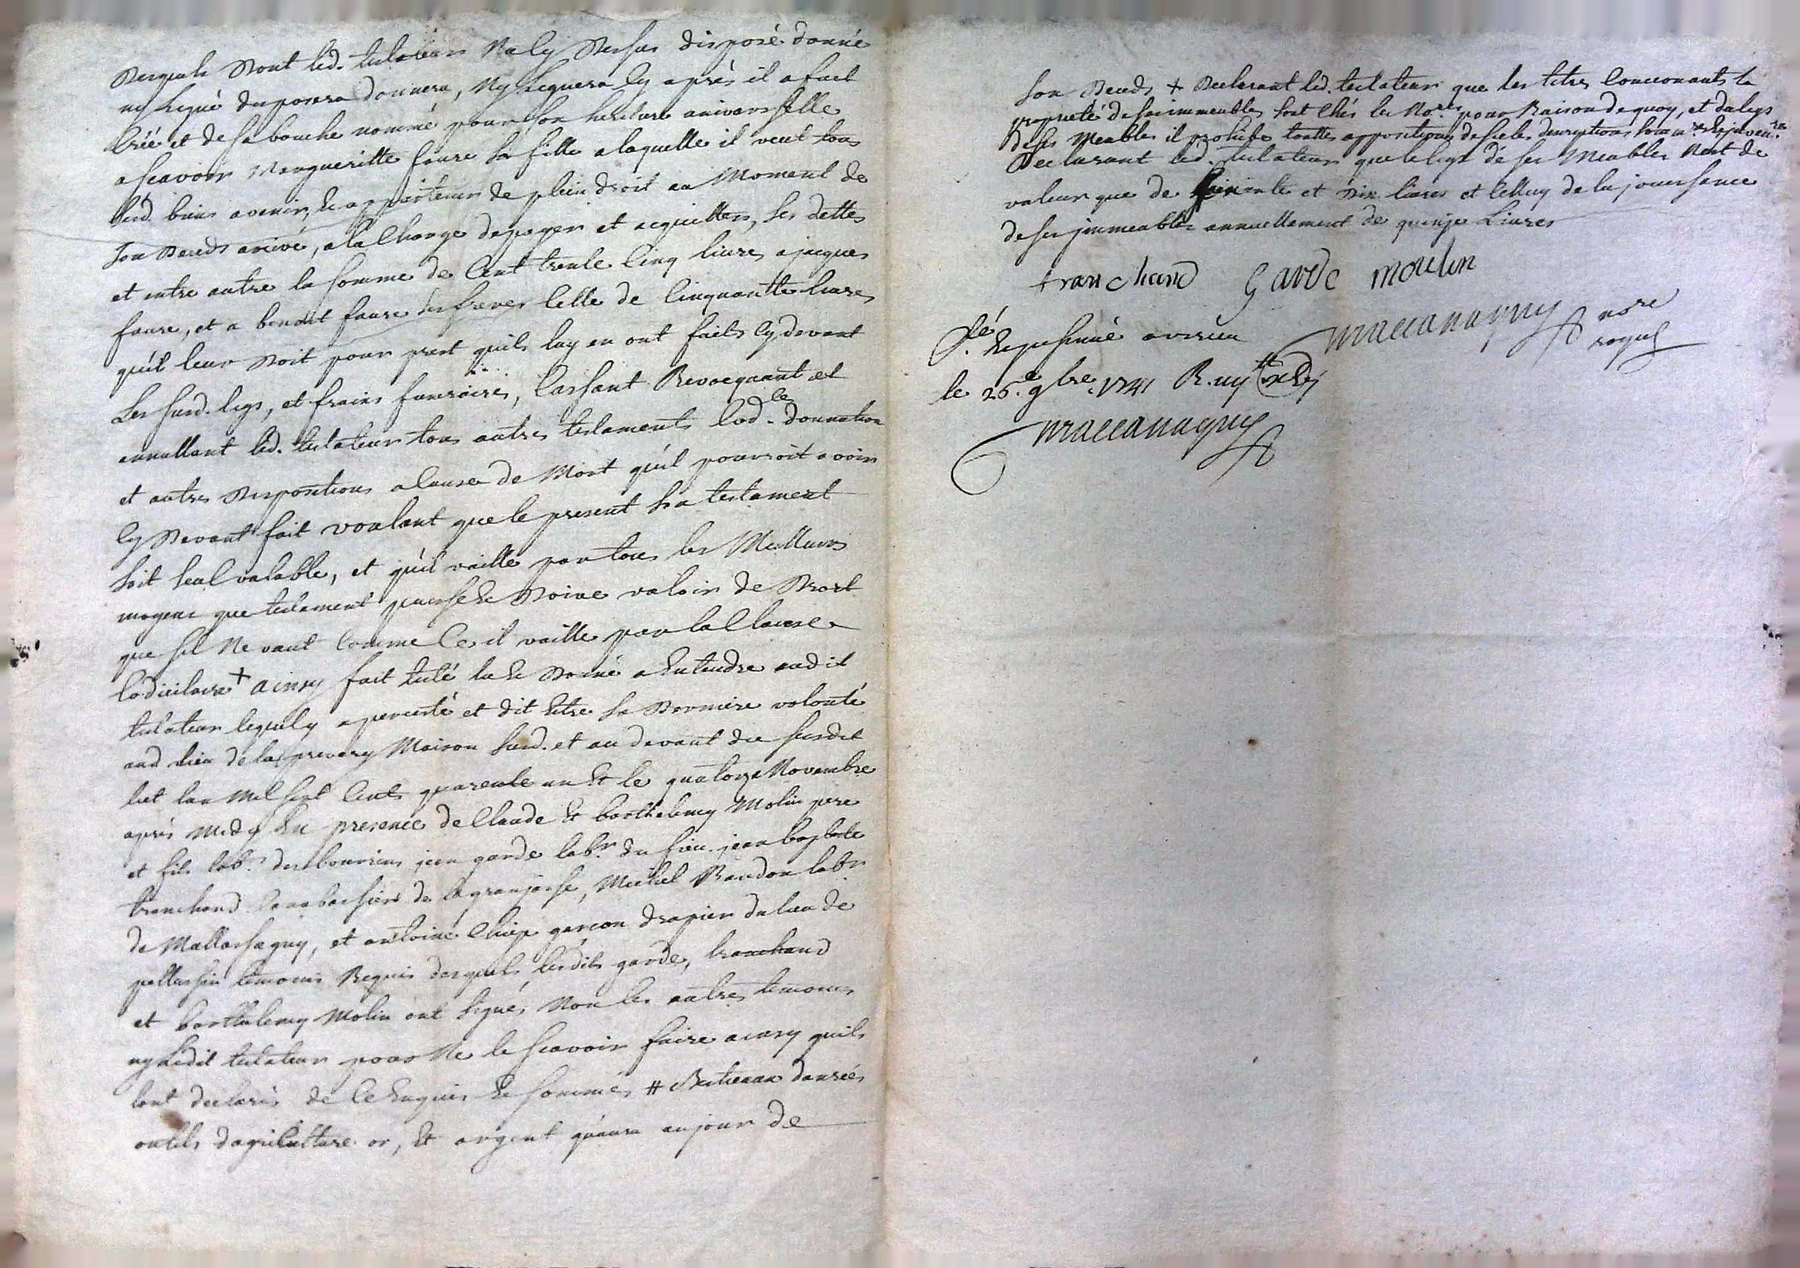 desquels dont led. testateur na cy dessus disposé donné
ny legué disposera donnera, ny leguera cy après il a fait
créé et de sa bouche nommé pour son heritiere universelle
a scavoir Margueritte faure sa fille a laquelle il veut tous
sesd. biens avenir, & appartenir de plein droit au moment de
son deceds arivé, a la charge de payer et acquitter, ses dettes
et entre autre la somme de Cent trente Cinq livres a jacques
faure, et a benoit faure ses freres celle de Cinquantte livres
quil leur doit pour prest quils luy en ont faits cy devant
Les susd. legs, et fraix funeraires, Cassant Revocquant et
annullant led. testateur tous autres testaments Cod.le donnation
et autres dispositions a Cause de Mort quil pourroit avoir
cy devant fait voulant que le present son testament
soit seul valable, et quil vaille par tous les Meilleurs
moyens que testament puisse & doive valoir de droit
que sil ne vaut Comme Ce il vaille par la Clause
Codicilaire + ainsy fait leu & donné a Entendre audit
testateur lequel y a percisté et dit estre sa derniere volonté
aud. lieu de la maison susd. et au devant du susdit
lict lan mil sept Cents quarente un & le quatorze Novembre
après midy En presence de Claude & barthelemy Molin pere
et fils lab.rs jean garde lab.r du lieu jean baptiste
tranchand de la granjasse, Michel Baudon lab.r
de Mallassagny, et antoine garcon drapier du lieu de
pellussin temoins Requis desquels lesdits garde, tranchand
et barthelemy Molin ont signés Non les autres temoins
ny ledit testateur pour Ne le scavoir faire ainsy quils
lont declarés de Ce Enquis & sommés # Bestiaux danrées
outils dagriculture or, & argent quaura au jour de
son deceds + declarant led. testateur que les titres Concernants la
proprieté de ses immeubles sont chés les No.res pour Raison de quoy, et du legs
de ses Meubles il prohibe touttes appositions de scelés descriptions somm.re & inven.re
declarant led. testateur que le legs de ses Meubles Nest de
valeur que de et dix livres et Celluy de la jouissance
de ses jmmeubles annuellement de quinze Livres
tranchand Garde moulin
maccanagny no.re royal
le 25.e 9bre 1741
maccanagny